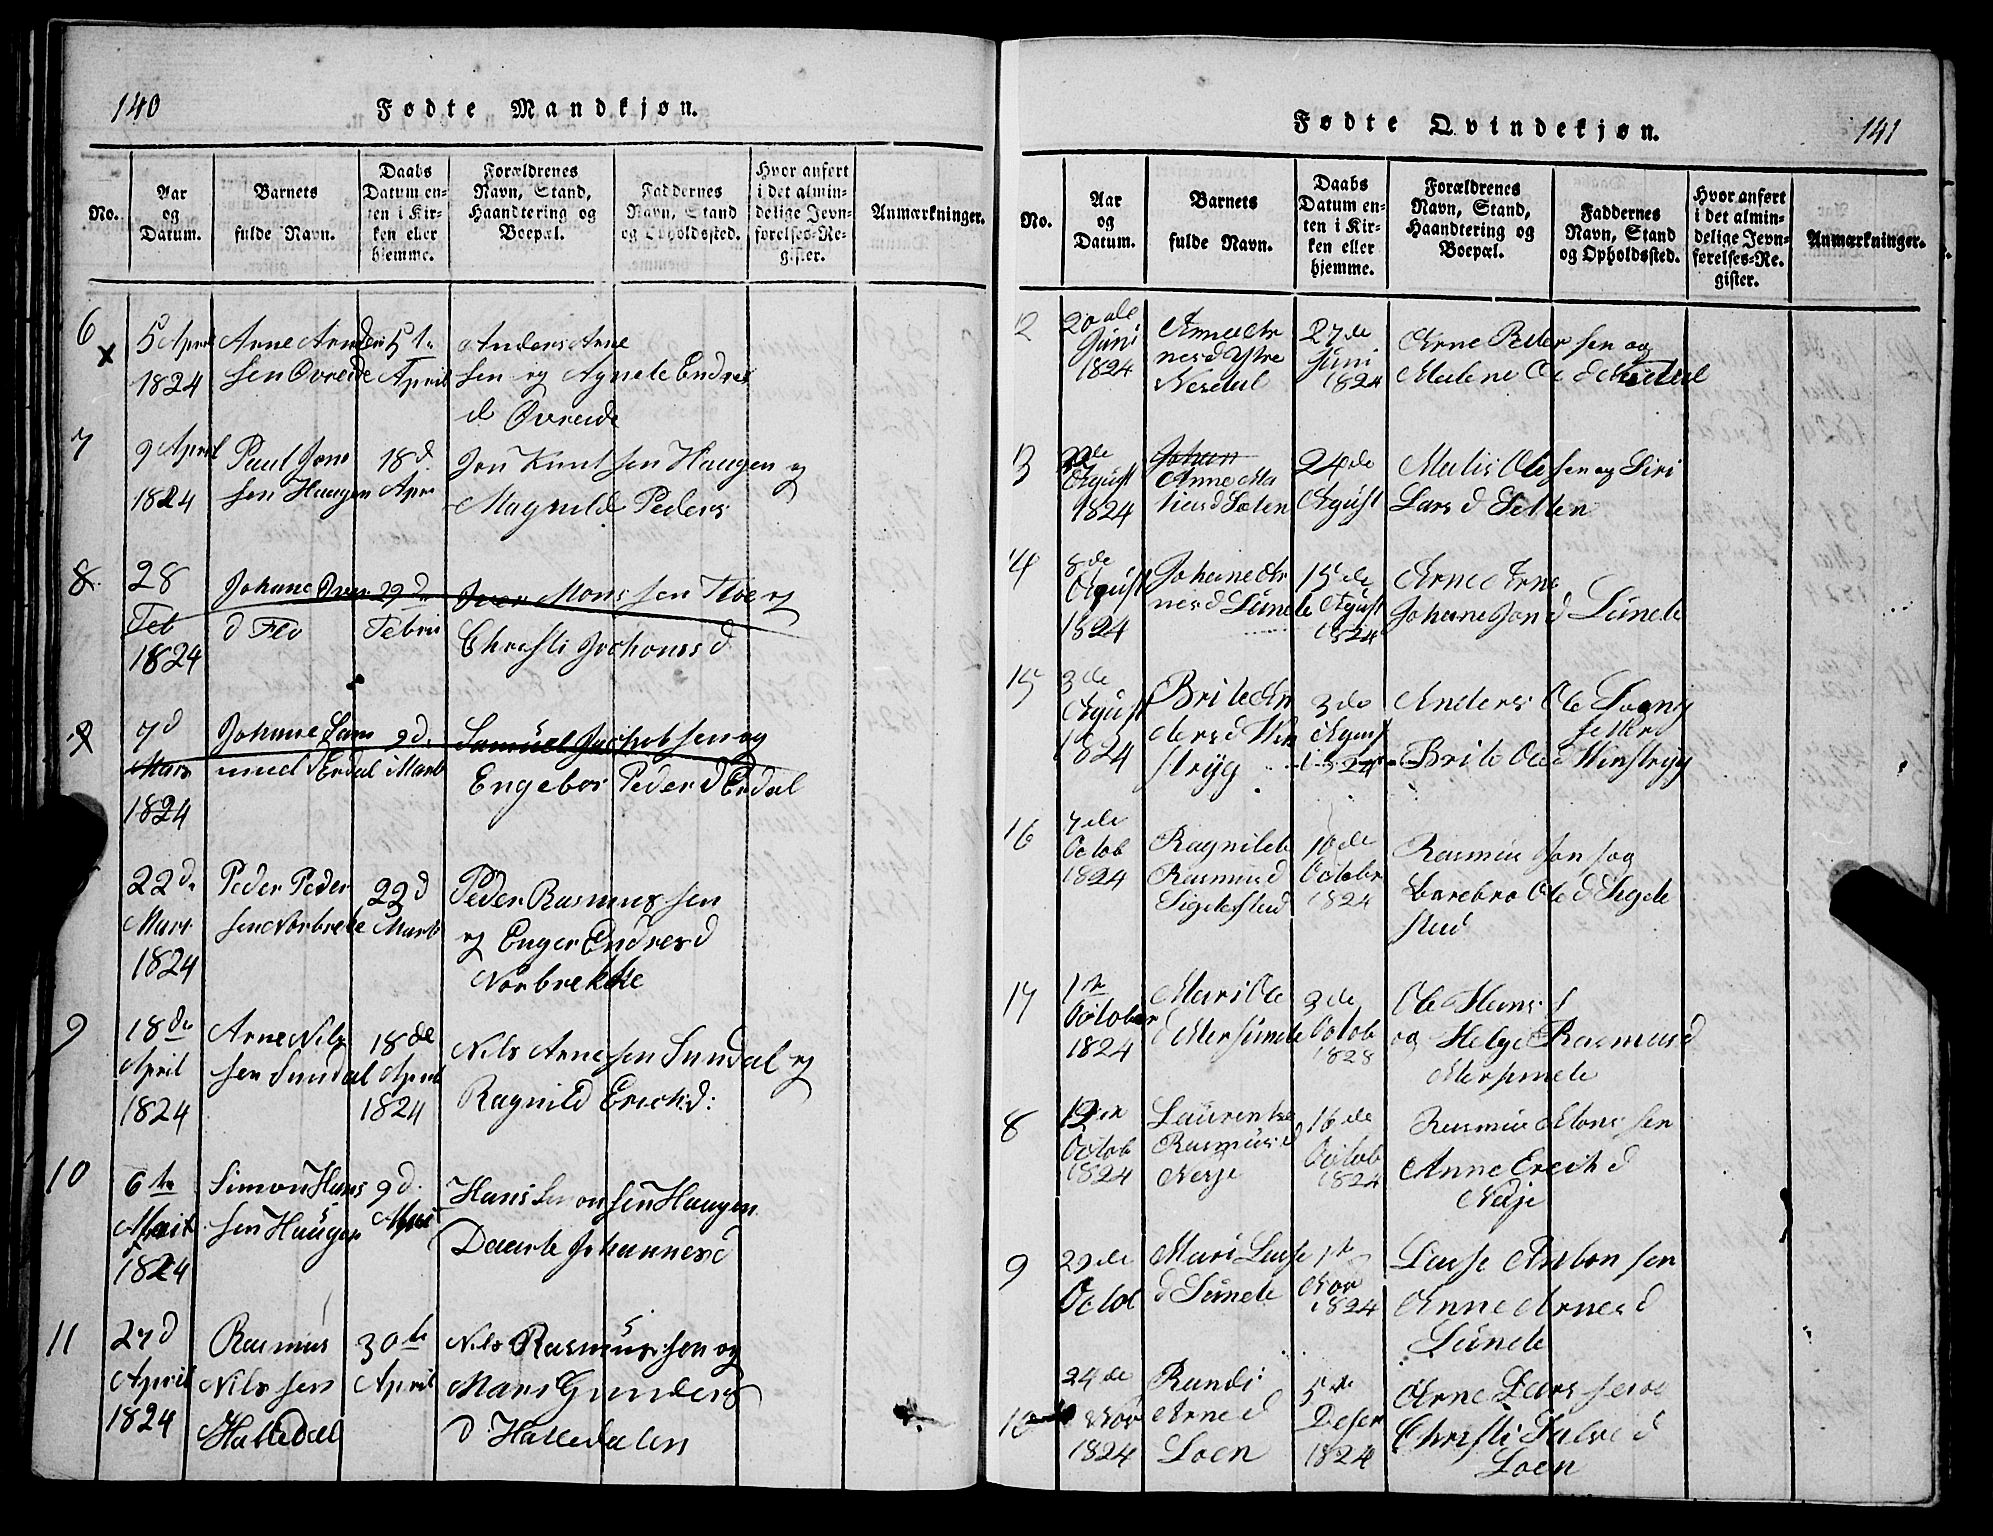 140
Fødte Mandkjøn.
No.
Aar
og
Datum.
Barnets
fulde Navn.
Daabs
Datum en-
ten i Kir-
ken eller
hjemme.
Forældrenes
Navn, Stand,
Haandtering og
Boepæl.
Faddernes
Navn, Stand
og Opholdssted.
Hvor anført
i det almin-
delige Jevn-
førelses-Re-
gister.
Anmærkninger.
6
5 April
1824
Arne
sen Øvreide
April
Anders Arne
sen og Agnete Endres
d Øvreide
7
9 April
1824
Paul Jons
sen Haugen
18 d.
Apr
Jon Knutsen Haugen og
Magnilde Peders
8
28
Feb
1824
Johane Iver
d Flo
29 d
Febru
Iver Monssen Floe og
Christi Jochoms d
7 d
Mars
1824
Johane Sam
9 d.
Samuel Jachobsen og
Engebor Peder d Erdal
22 d.
Mars
1824
Peder Peder
sen Norbrekke
22 d
Peder Rasmussen
og Enger Endres d
Norbrekke
9
18 de
April
1824
Arne Nils
sen Sundal
18 de
April
1824
Nils Arnesen Sundal og
Ragnild Erichd:
10
6 te
1824
Simon Hans
sen Haugen
9 d.
Hans Simonsen Haugen
Daarte Johannesd
11
27 d
April
1824
Rasmus
Nilssen
Halledal
30 te
April
Nils Rasmussen og
Mari Gunders
d Halledalen
141
Fødte Qvindekjøn.
No.
Aar
og
Datum.
Barnets
fulde Navn.
Daabs
Datum en-
ten i Kir-
ken eller
hjemme.
Forældrenes
Navn, Stand,
Haandtering og
Boepæl.
Faddernes
Navn, Stand
og Opholdssted.
Hvor anført
i det almin-
delige Jevn-
førelses-Re-
gister.
Anmærkninger.
2
20 de
Juni
1824
Anne Ar
nesd Ytre
Nesdal
27 de
Juni
1824
Arne Pedersen og
Malene Ole d
3
22 de
Agust
1824
Johan
Anne Ma
tiesd Sæten
24 de
Agust
Matis Olesen og Siri
Lars d Setten
4
8 de
Agust
1824
Johane Ar
nesd Sunde
15 de
Agust
1824
Arne Arne
Johane Jon d Sunde
15
3 de
Agust
1824
Brite An
dersd Win
stryg
3 de
Agust
1824
Anders Ole
Brite Ole d Winstryg
16
7 de
Octob
1824
Ragnilde
Rasmusd
Sigdestad
10 de
Octobr
1824
Rasmus Jons og
Barebra Ole d Sigde
stad
17
1 te
October
1824
Mari Ole
d Mersunde
3 de
Octob
1828
Ole Hans s
og Helge Rasmusd
Mersunde
8
12 te
Octob
1824
Laurentse
Rasmusd
Nesje
16 de
Octob
1824
Rasmus Monssen
Anne Erichd
Nesje
9
29 de
Octob
Mari Lasse
d Sunde
1 te
Nov
1824
Lasse Antonsen
Anne Arnesd
Sunde
10
24 de
Nov
1824
Randi
Arne d
Loen
5 te
Deser
1824
Arne Larssen og
Christi d
Loen